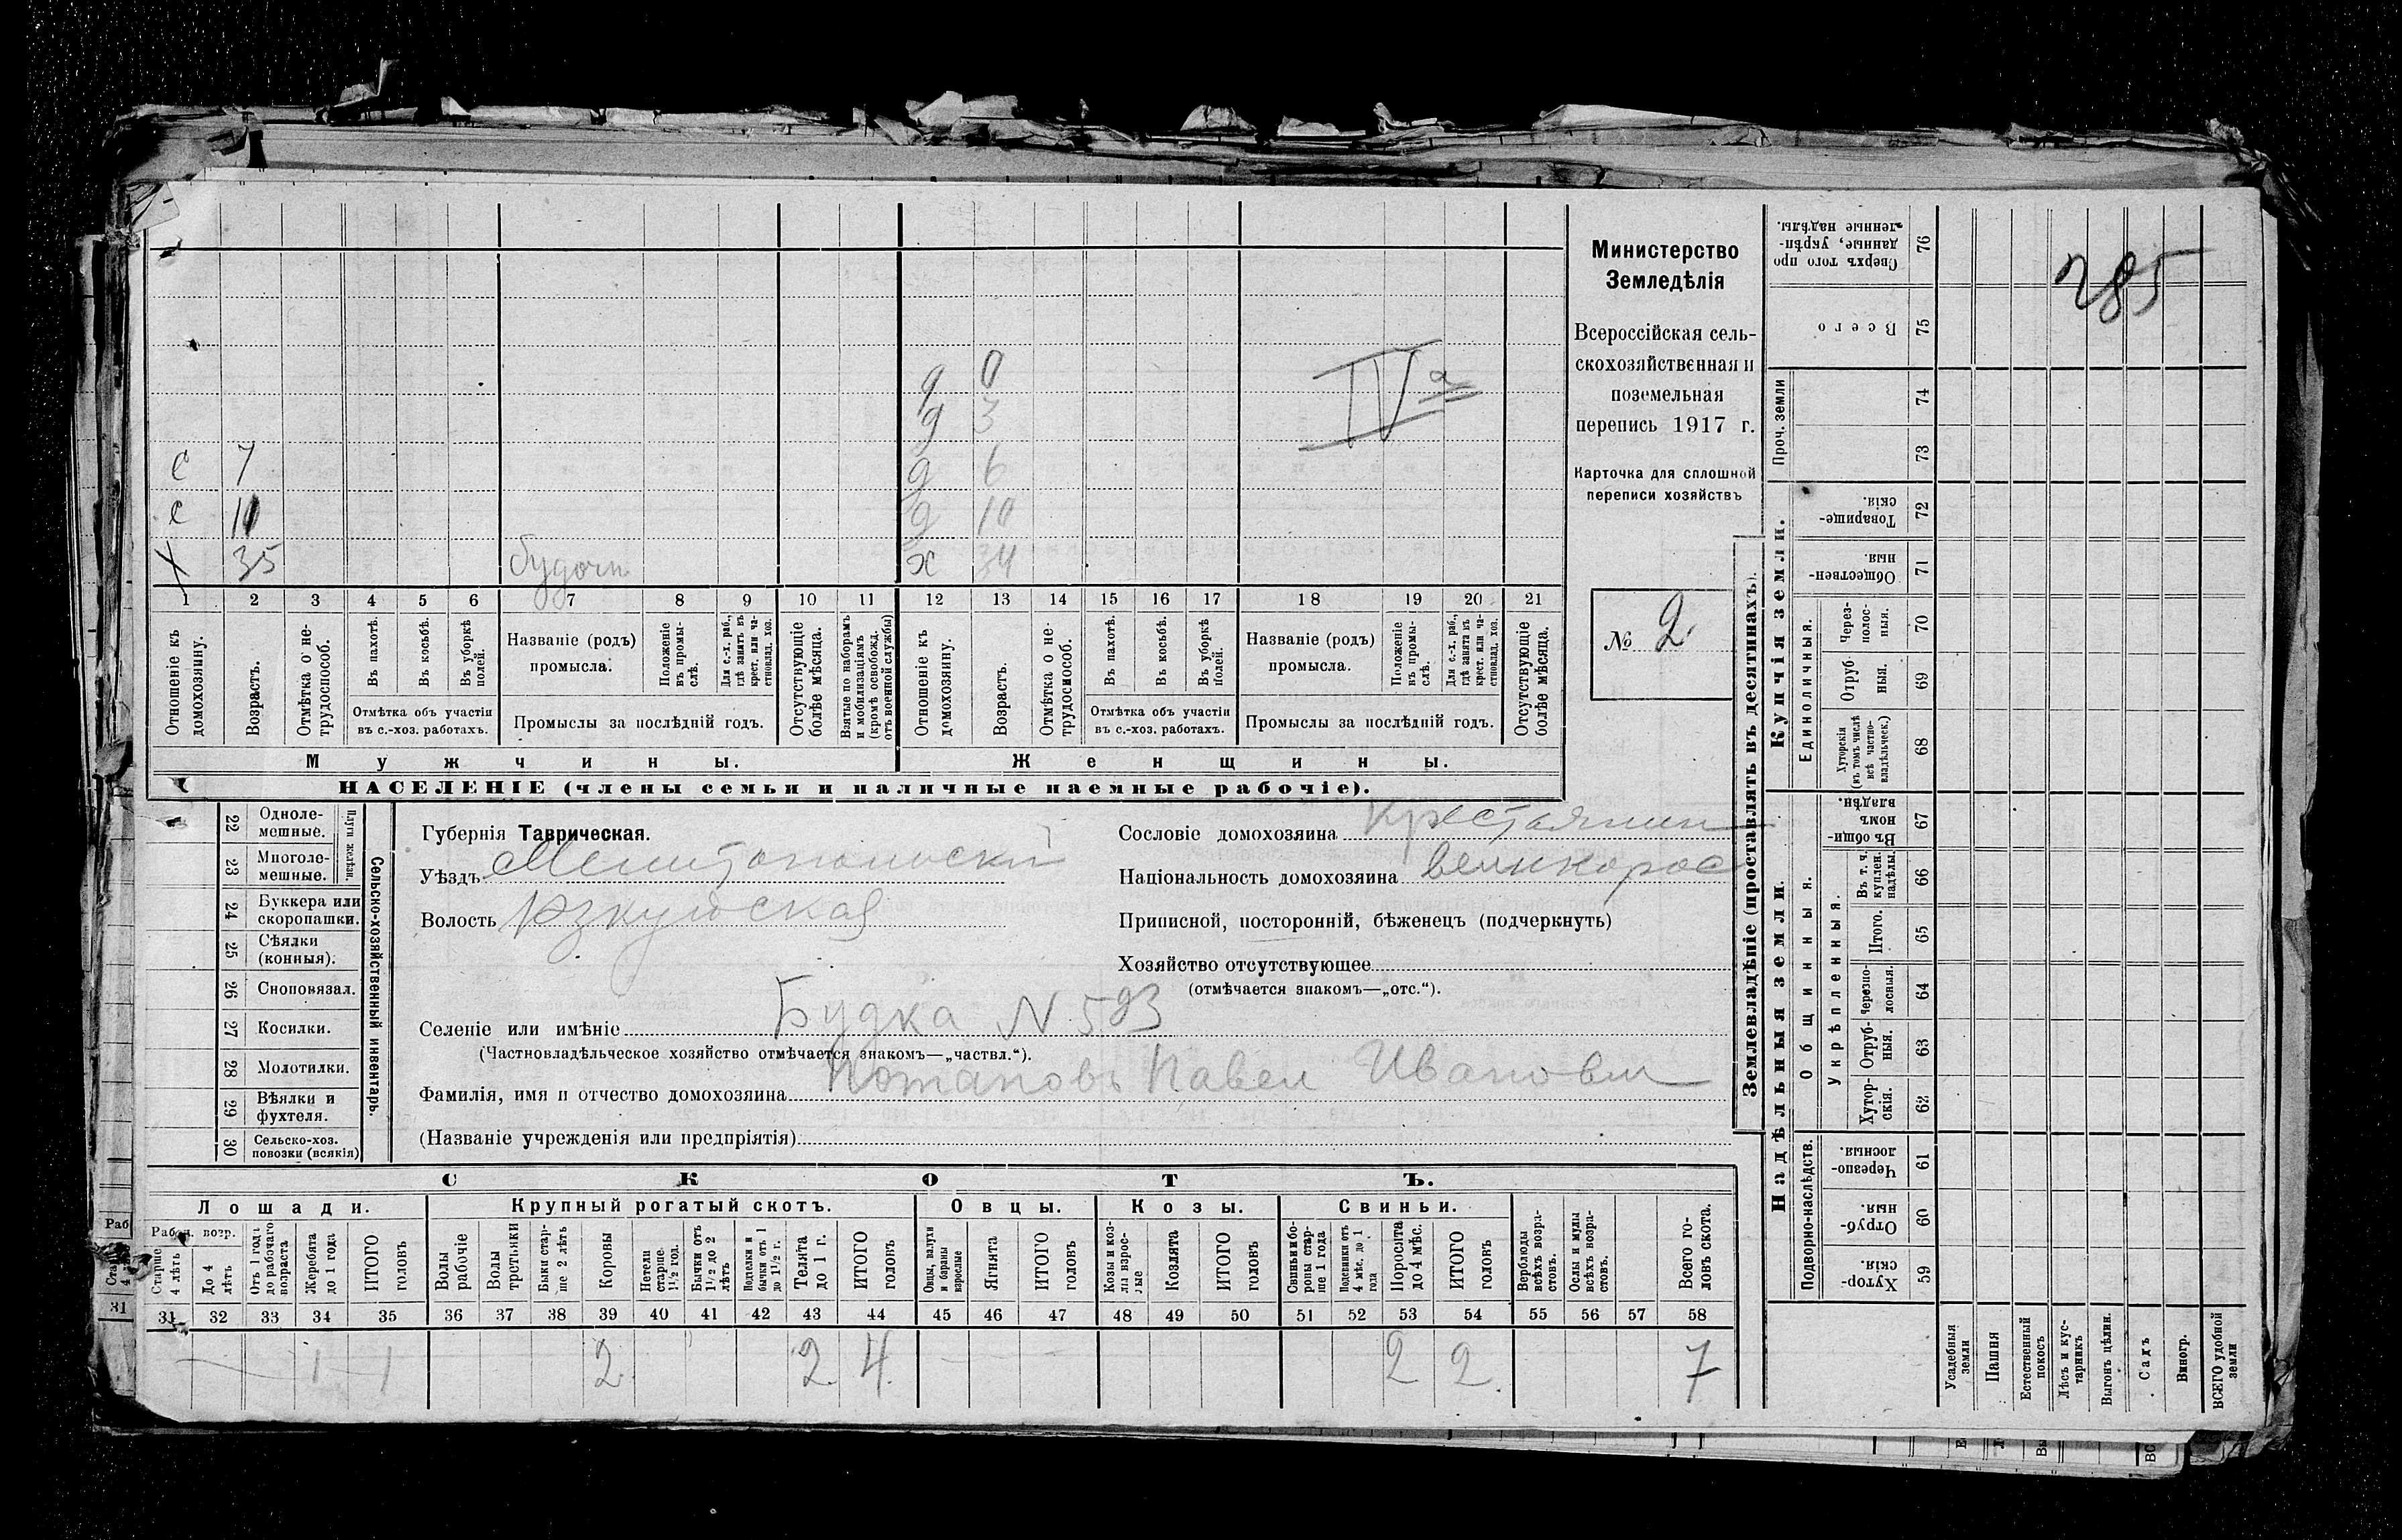 285
Министерство
Земледѣлія
Всероссійская сель-
скохозяйственная и
поземельная
перепись 1917 г.
Карточка для сплошной
переписи хозяйствъ
№ 2
IVа
д 0
д 3
с 7 д 6
с 10 д 10
х 35 х 34
1 2 3 4 5 6 7 8 9 10 11 12 13 14 15 16 17 18 19 20 21
Отношеніе къ домохозяину.
Возрастъ.
Отмѣтка о не-трудоспособ.
Въ пахотѣ.
Въ косьбѣ.
Въ уборкѣ полей.
Отмѣтка объ участіи
въ с.-хоз. работахъ.
Названіе (родъ)
промысла.
Положеніе въ промы-слѣ.
Для с.-х. раб., гдѣ занятъ въ крест. или ча-стновлад. хоз.
Промыслы за послѣдній годъ.
Отсутствующіе болѣе мѣсяца.
Взятые по наборамъ и мобилизаціямъ (кромѣ освобожд. отъ военной службы)
Отношеніе къ домохозяину.
Возрастъ.
Отмѣтка о не-трудоспособ.
Въ пахотѣ.
Въ косьбѣ.
Въ уборкѣ полей.
Отмѣтка объ участіи
въ с.-хоз. работахъ.
Названіе (родъ)
промысла.
Положеніе въ промы-слѣ.
Для с.-х. раб., гдѣ занята въ крест. или ча-стновлад. хоз.
Промыслы за послѣдній годъ.
Отсутствующіе болѣе мѣсяца.
Мужчины. Женщины.
НАСЕЛЕНІЕ (члены семьи и наличные наемные рабочіе).
Сельско-хозяйственный инвентарь.
Плуги желѣзн.
22 Одноле-мешные.
23 Многоле-мешные.
24 Буккера или скоропашки.
25 Сѣялки (конныя).
26 Сноповязал.
27 Косилки.
28 Молотилки.
29 Вѣялки и фухтеля.
30 Сельско-хоз. повозки (всякія)
Губернія Таврическая.
Уѣздъ Мелитопольскій
Волость
Сословіе домохозяина крестьянин
Національность домохозяина великорос
Приписной, посторонній, бѣженецъ (подчеркнуть)
Хозяйство отсутствующее
(отмѣчается знакомъ—„отс.“).
Селеніе или имѣніе Будка N 593
(Частновладѣльческое хозяйство отмѣчается знакомъ—„частвл.“).
Фамилія, имя и отчество домохозяина Потаповъ Павел Иванович
(Названіе учрежденія или предпріятія)
СКОТЪ.
Лошади. Крупный рогатый скотъ. Овцы. Козы. Свиньи.
Рабоч. возр.
Старше 4 лѣтъ
До 4 лѣтъ
Отъ 1 года до рабочаго возраста
Жеребята до 1 года
ИТОГО головъ
Волы рабочіе
Волы третьяки
Быки стар-ше 2 лѣтъ
Коровы
Нетели старше 1½ год.
Бычки отъ 1½ до 2 лѣтъ
Подтелки и бычки отъ 1 до 1½ г.
Телята до 1 г.
ИТОГО головъ
Овцы, валухи и бараны взрослые
Ягнята
ИТОГО головъ
Козы и коз-лы взрос-лые
Козлята
ИТОГО головъ
Свиньи и бо-ровы стар-ше 1 года
Подсвинки отъ 4 мѣс. до 1 года
Поросята до 4 мѣс.
ИТОГО головъ
Верблюды всѣхъ возра-стовъ.
Ослы и мулы всѣхъ возра-стовъ.
Всего го-ловъ скота.
31 32 33 34 35 36 37 38 39 40 41 42 43 44 45 46 47 48 49 50 51 52 53 54 55 56 57 58
1 1 2 2 4 2 2 7
Землевладѣніе (проставлять въ десятинахъ).
Купчія земли.
Надѣльныя земли.
Проч. земли
Единоличныя.
Общинныя.
Укрѣпленныя.
Подворно-наслѣдств.
76 Сверхъ того про данные, укрѣп-ленные надѣлы.
75 Всего
74
73
72 Товарище-скія.
71 Обществен-ныя.
70 Через-полос-ныя.
69 Отруб-ныя.
68 Хуторскія (въ томъ числѣ всѣ частно-владѣльческ.)
67 Въ общи-номъ владѣн.
66 Въ т. ч. куплен. надѣлы.
65 Итого.
64 Черезпо-лосныя.
63 Отруб-ныя.
62 Хутор-скія.
61 Черезпо-лосныя.
60 Отруб-ныя.
59 Хутор-скія.
Усадебныя земли
Пашня
Естественный покосъ
Лѣсъ и кус-тарникъ
Выгонъ цѣлин.
Садъ
Виногр.
ВСЕГО удобной земли
Раб
31